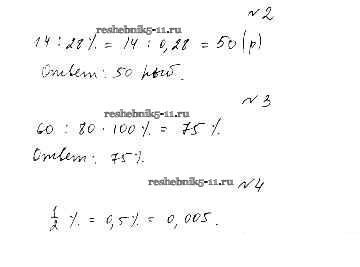 №2
reshebnik5-11.ru
14 : 28% = 14 : 0,28 = 50 (р)
Ответ: 50 рыб.
№3
reshebnik5-11.ru
60 : 80 · 100% = 75%
Ответ: 75%
reshebnik5-11.ru №4
1/2 % = 0,5% = 0,005.